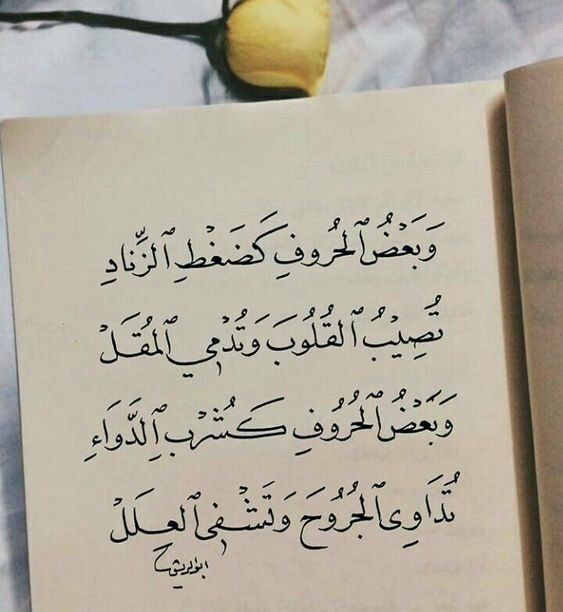 وَبَعْضُ ٱلحُروفِ كَضَغْطِ ٱلزِّنادِ
تُصِيْبُ ٱلقُلُوبَ وَتُدْمِي ٱلمُقَلْ
وَبَعْضُ ٱلحُرُوفِ كَشُرْبِ ٱلدَّوَاءِ
تُدَاوِي ٱلجُرُوحَ وَتَشْفِي ٱلعِلَلْ
ابوالريش